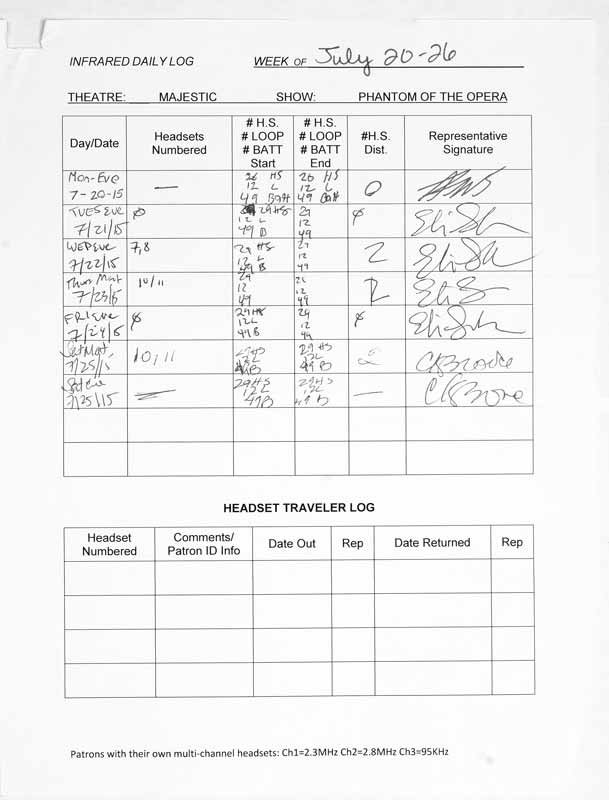 INFRARED DAILY LOG WEEK OF July 20-26
THEATRE: MAJESTIC SHOW: PHANTOM OF THE OPERA
Day/Date
Headsets
Numbered
# H.S.
# LOOP
# BATT
Start
# H.S.
# LOOP
# BATT
End
#H.S.
Dist.
Representative
Signature
Mon-Eve
7-20-15
—
26 HS
12 L
49 Batt
26 HS
12 L
49 Batt
0
TUES EVE
7/21/15
ø
29 HS
12 L
49 B
29
12
49
ø
WED EVE
7/22/15
7,8
29 HS
12 L
49 B
29
12
49
2
Thurs Mat
7/23/15
10/11
29
12
49
12
49
2
FRI EVE
7/24/15
ø
29 HS
12L
49B
29
12
49
ø
Sat Mat,
7/25/15
10, 11
29HS
12L
49B
29 HS
12L
49 B
2
Sat Eve
7/25/15
—
29HS
12L
49B
29HS
12L
49 B
—
HEADSET TRAVELER LOG
Headset
Numbered
Comments/
Patron ID Info
Date Out
Rep
Date Returned
Rep
Patrons with their own multi-channel headsets: Ch1=2.3MHz Ch2=2.8MHz Ch3=95KHz